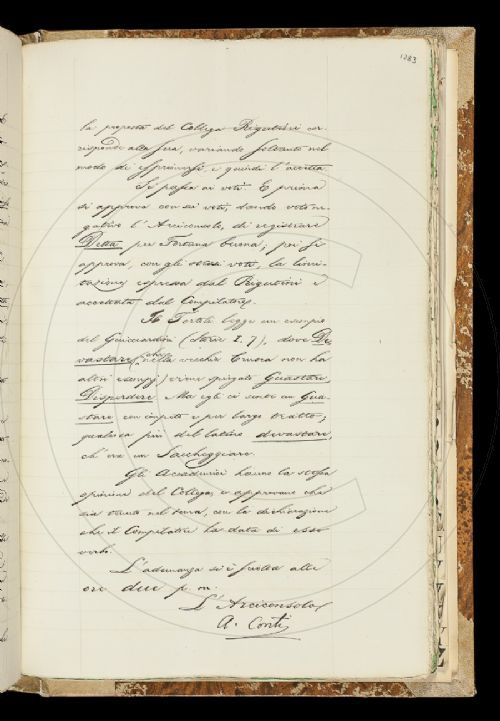 1283
la proposta del Collega Rigutini cor-
risponde alla sua, variando soltanto nel
modo di esprimersi, e quindi l'accetta.
Si passa ai voti. E prima
si approva con sei voti, dando voto ne-
gativo l'Arciconsolo, di registrare
Detta per Fortuna buona; poi si
approva, con gli stessi voti, la limi-
tazione espressa dal Rigutini e
accettata dal Compilatore.
Il Tortoli legge un esempio
del Guicciardini (Storie I. 7), dove De-
vastare (che nella vecchia Crusca non ha
altri esempi) viene spiegato Guastare,
Disperdere. Ma egli ci sente un Gua-
stare con impeto e per largo tratto;
qualcosa più del latino devastare,
ch'era un Saccheggiare.
Gli Accademici hanno la stessa
opinione del Collega, e approvano che
sia tenuto nel tema, con la dichiarazione
che il Compilatore ha data di esso
verbo.
L'adunanza si è sciolta alle
ore due p. m.
L'Arciconsolo
A. Conti